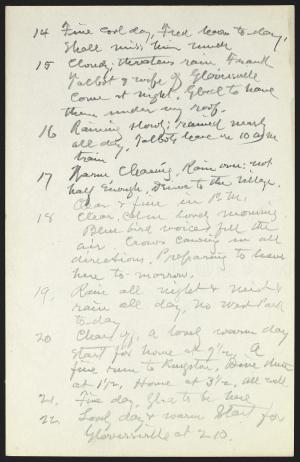 14 Fine cool day, Fred leaves to-day,
Shall miss him much
15 Cloudy, threatens rain. Frank
Talbot & wife of Gloversville
come at night. Glad to have
them under my roof.
16 Raining slowly; rained nearly
all day, Talbots leave on 10 am
train
17 Warm Clearing, Rain over; not
half enough, Drive to the village.
Clear & fine in P.M.
18 Clear, calm lovely morning
Blue bird voices fill the
air. Crows cawing in all
directions. Preparing to leave
here to-morrow.
19. Rain all night & mist &
rain all day, no West Park
to-day
20 Clears off, a lovely warm day
start for home at 9½. A
fine run to Kingston, Dine there
at 1½, Home at 3½, all well.
21. Fine day, Glad to be here
22 Lovely day & warm Start for
Gloversville at 2 10.